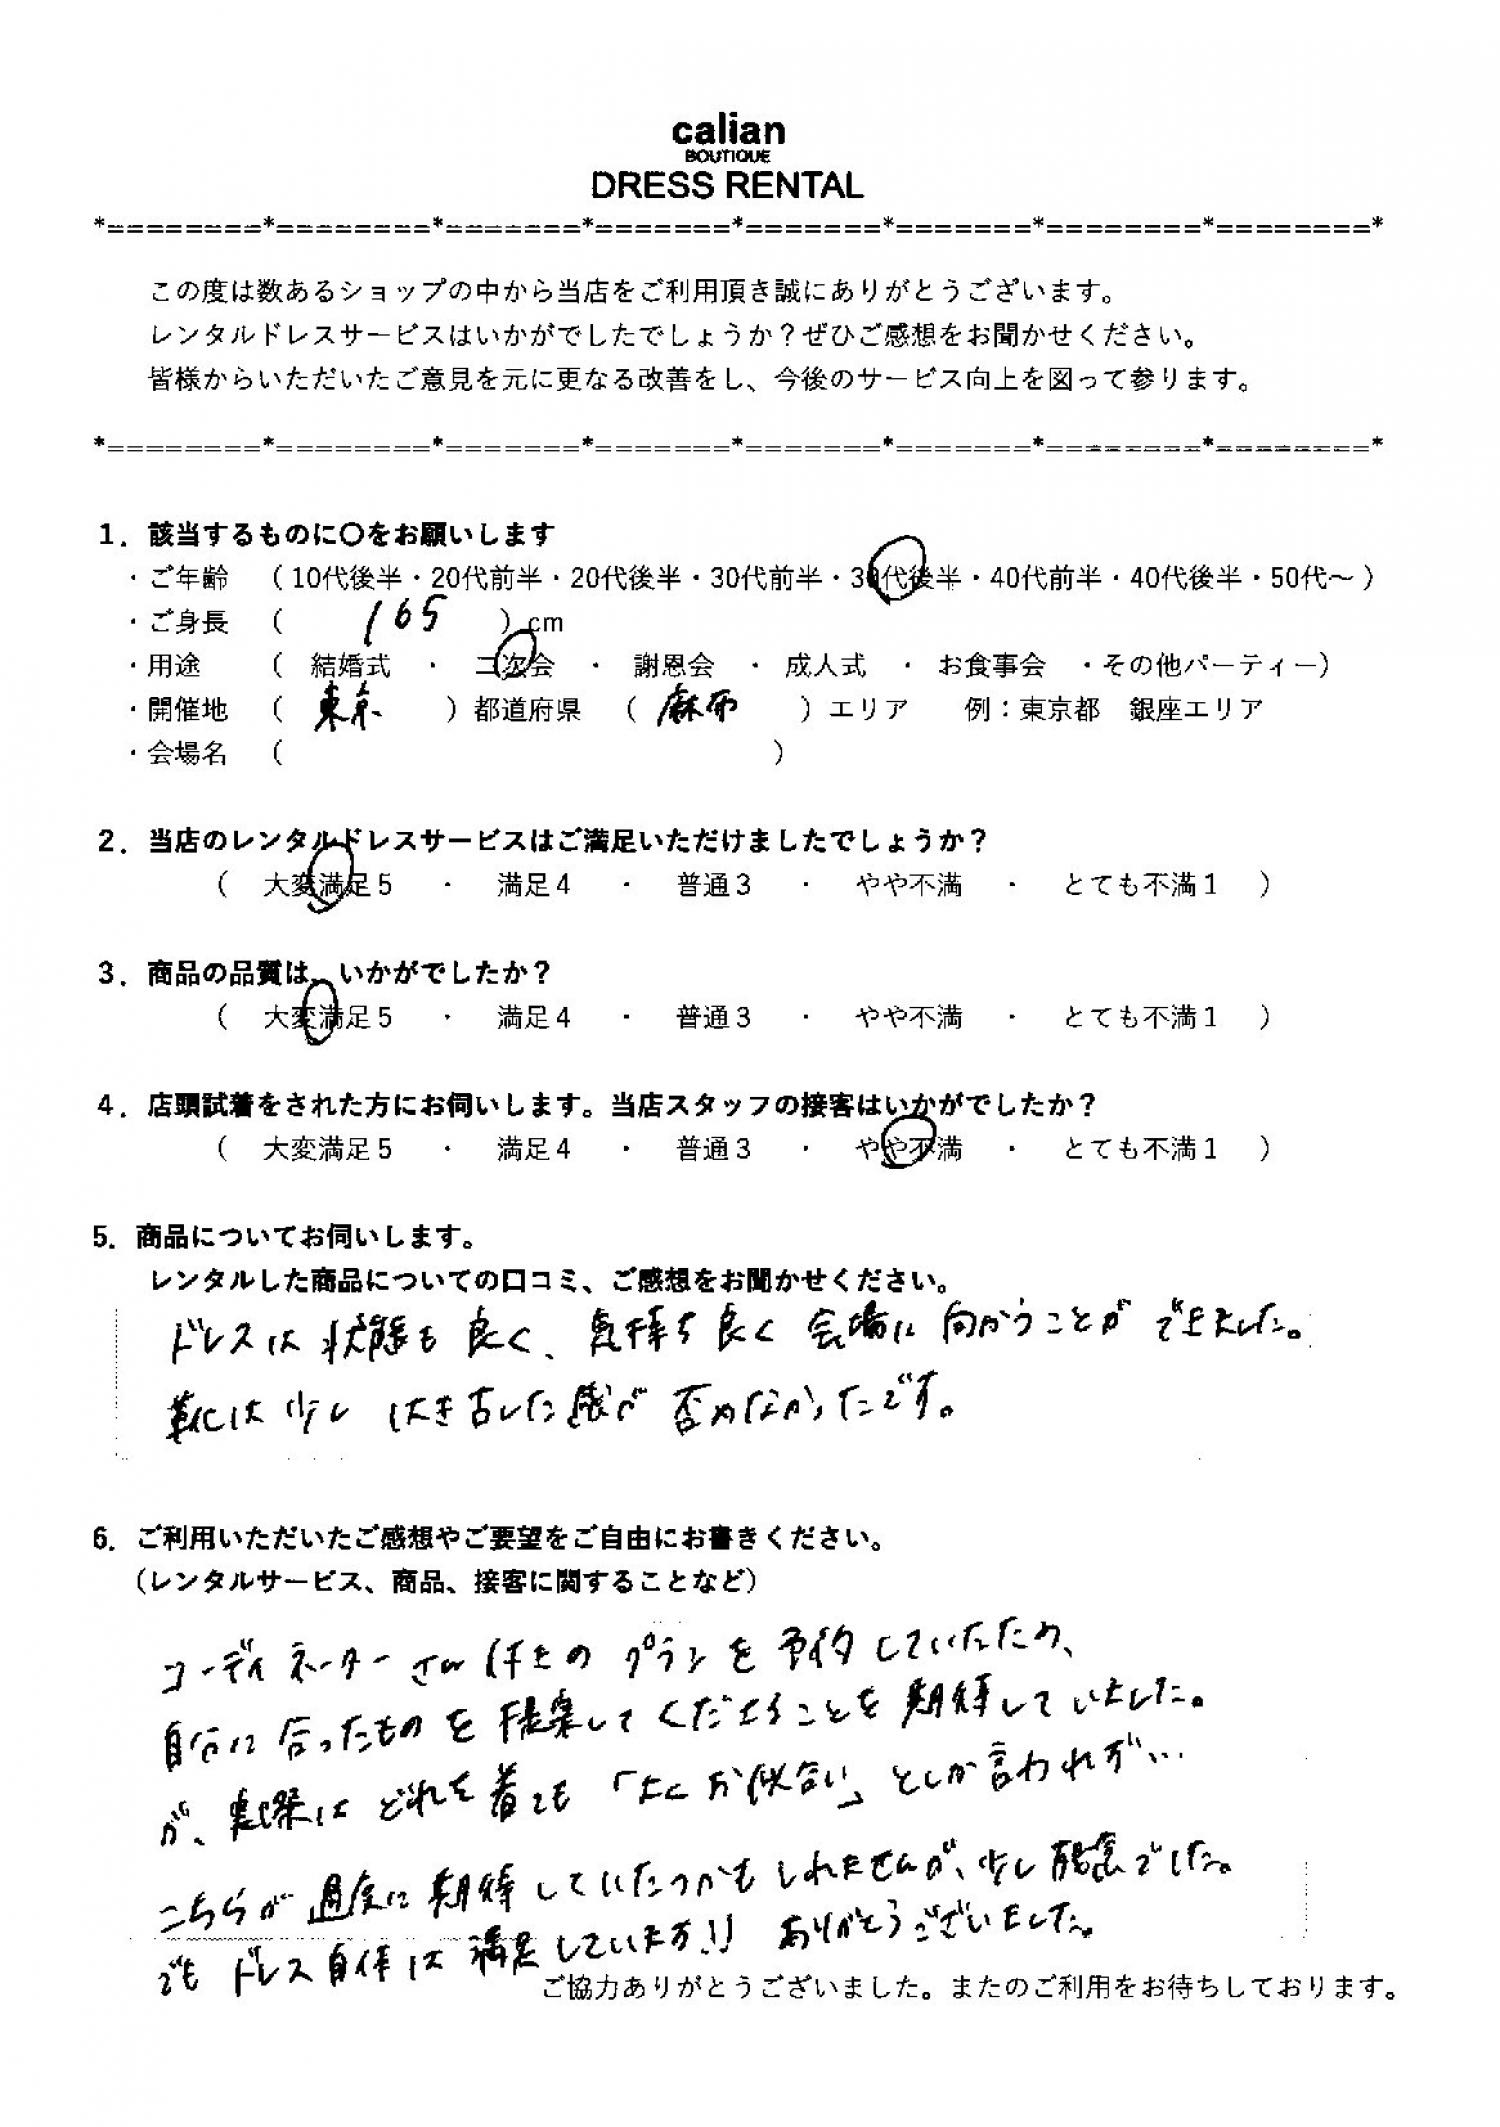 calian
BOUTIQUE
DRESS RENTAL
*========*========*=======*=======*=======*=======*========*========*
この度は数あるショップの中から当店をご利用頂き誠にありがとうございます。
レンタルドレスサービスはいかがでしたでしょうか？ぜひご感想をお聞かせください。
皆様からいただいたご意見を元に更なる改善をし、今後のサービス向上を図って参ります。
*========*========*=======*=======*=======*=======*========*========*
1．該当するものに〇をお願いします
・ご年齢 （10代後半・20代前半・20代後半・30代前半・30代後半・40代前半・40代後半・50代～）
・ご身長 （ 165 ）cm
・用途 （ 結婚式 ・ 二次会 ・ 謝恩会 ・ 成人式 ・ お食事会 ・その他パーティー）
・開催地 （ 東京 ）都道府県 （ 麻布 ）エリア 例：東京都 銀座エリア
・会場名 （ ）
2．当店のレンタルドレスサービスはご満足いただけましたでしょうか？
（ 大変満足5 ・ 満足4 ・ 普通3 ・ やや不満 ・ とても不満1 ）
3．商品の品質は、いかがでしたか？
（ 大変満足5 ・ 満足4 ・ 普通3 ・ やや不満 ・ とても不満1 ）
4．店頭試着をされた方にお伺いします。当店スタッフの接客はいかがでしたか？
（ 大変満足5 ・ 満足4 ・ 普通3 ・ やや不満 ・ とても不満1 ）
5．商品についてお伺いします。
レンタルした商品についての口コミ、ご感想をお聞かせください。
ドレスは状態も良く、気持ち良く会場に向かうことができました。
靴は少しはき古した感が否めなかったです。
6．ご利用いただいたご感想やご要望をご自由にお書きください。
（レンタルサービス、商品、接客に関することなど）
コーディネーターさん付きのプランを予約していたため、
自分に合ったものを提案してくださることを期待していました。
が、実際はどれを着ても「よくお似合い」としか言われず…
こちらが過度に期待していたのかもしれませんが、少し残念でした。
でもドレス自体は満足しています!! ありがとうございました。
ご協力ありがとうございました。またのご利用をお待ちしております。